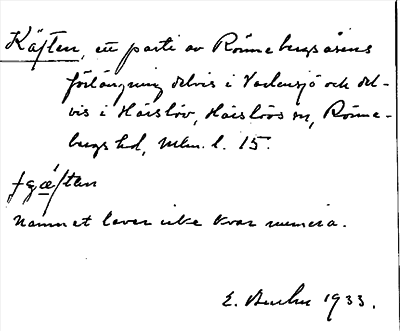 Käften, ett parti av Rönnebergsåsens
förlängning delvis i Vadensjö och del-
vis i Härslöv, Härslövs sn, Rönne-
bergs hd, Mlm. l. 15.
gæften
Namnet lever icke kvar numera.
E. 1933.